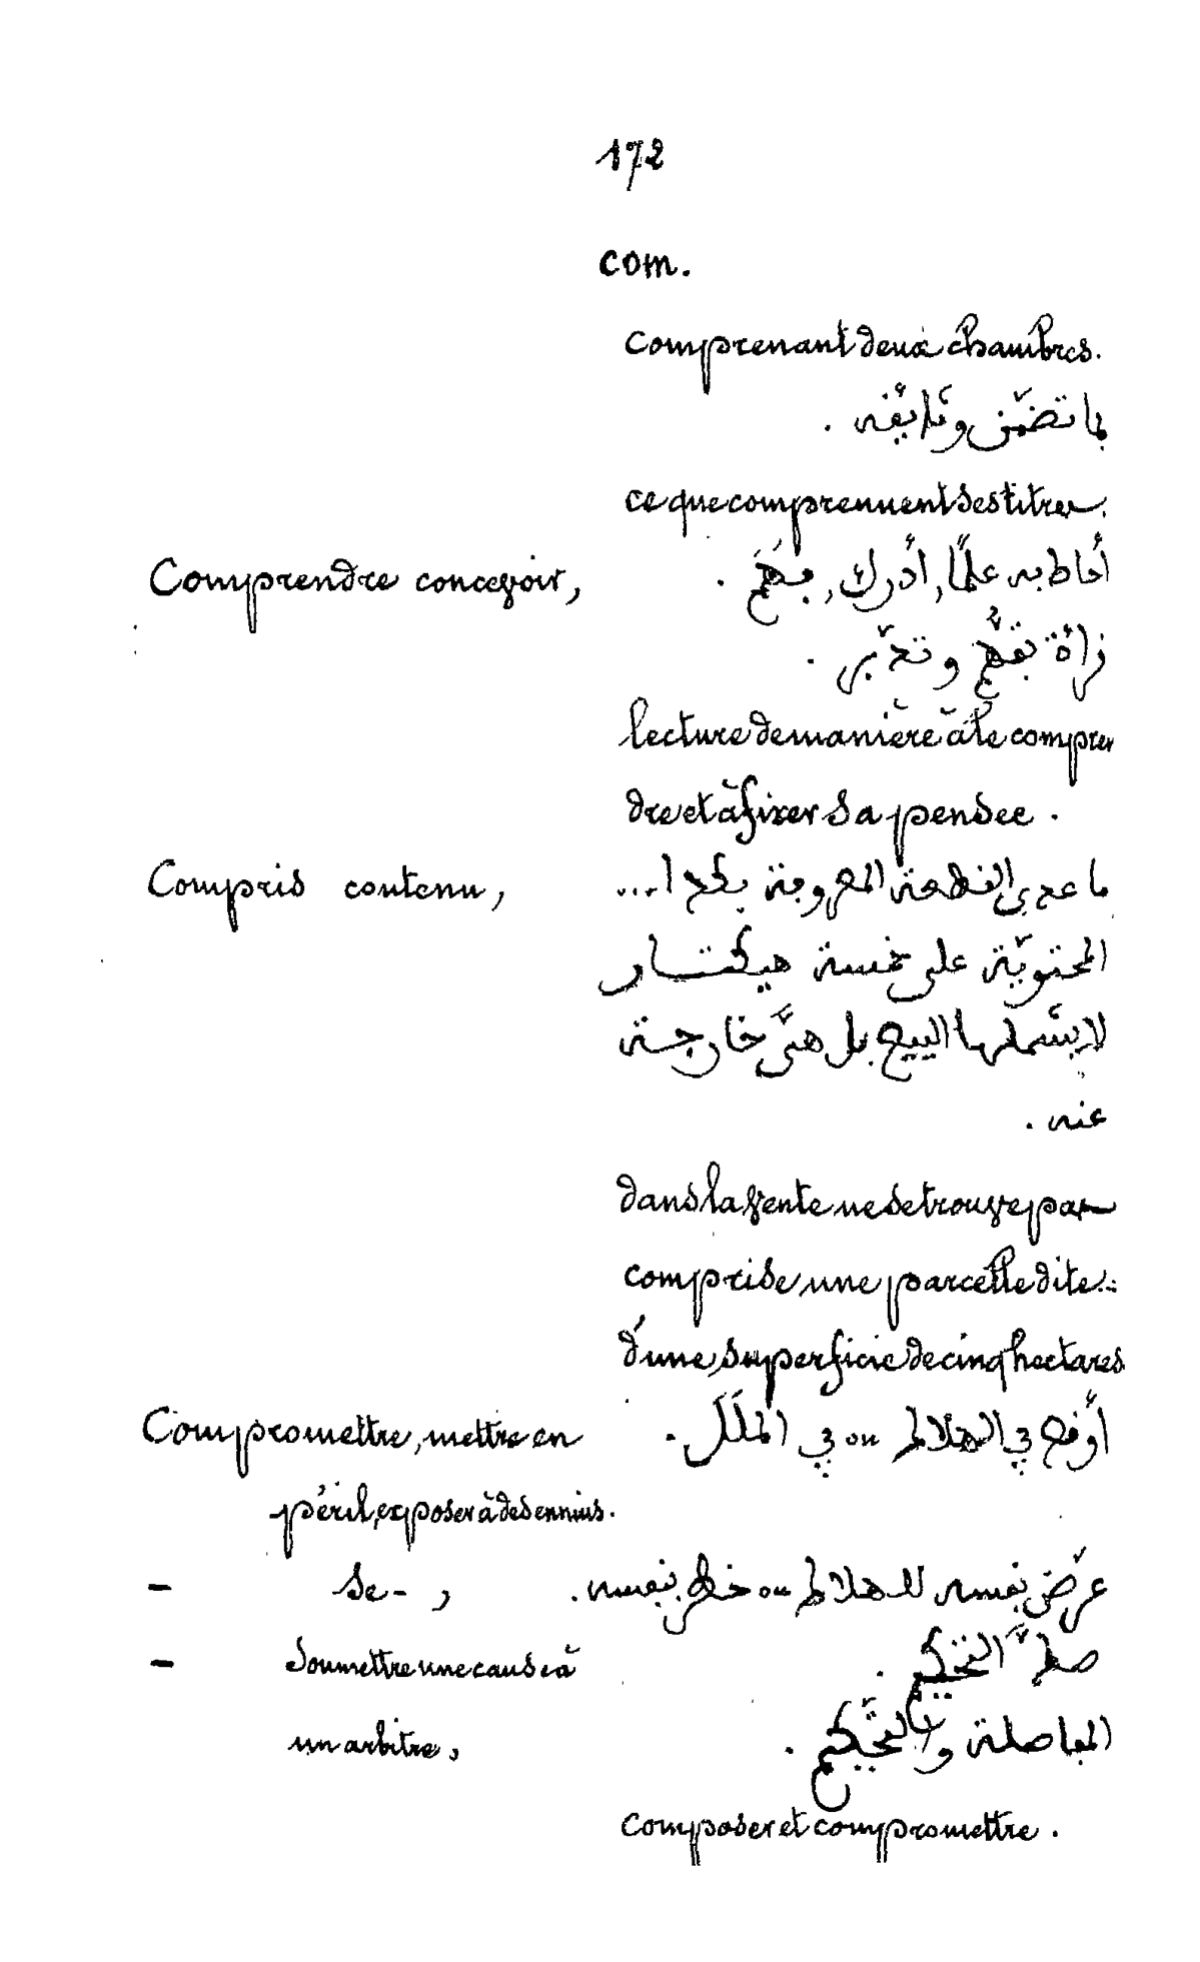 172
com.
comprenant deux chambres.
بما تضمّن وثايقه .
ce que comprennent ses titres.
Comprendre concevoir, أحاط به علمًا, أدرك, فهم .
قرأة تفهّم وتدبّر .
lecture de manière à le compren
dre et à fixer sa pensée .
Compris contenu, ما عدى القطعة المعروفة بكدا ...
المحتويّة على خمسة هيكتار
لا يشملها البيع بل هيَّ خارجة
عنه .
dans la vente ne se trouve pas
comprise une parcelle dite...
d'une superficie de cinq hectares
Compromettre, mettre en أوقع في الهلاك ou في الملَل .
péril, exposer à des ennuis.
– se - , عرّض نفسه للهلاك ou خطر بنفسه .
– soumettre une cause à التحكيم .
un arbitre, المفاصلة والتحكيم .
Composer et compromettre .